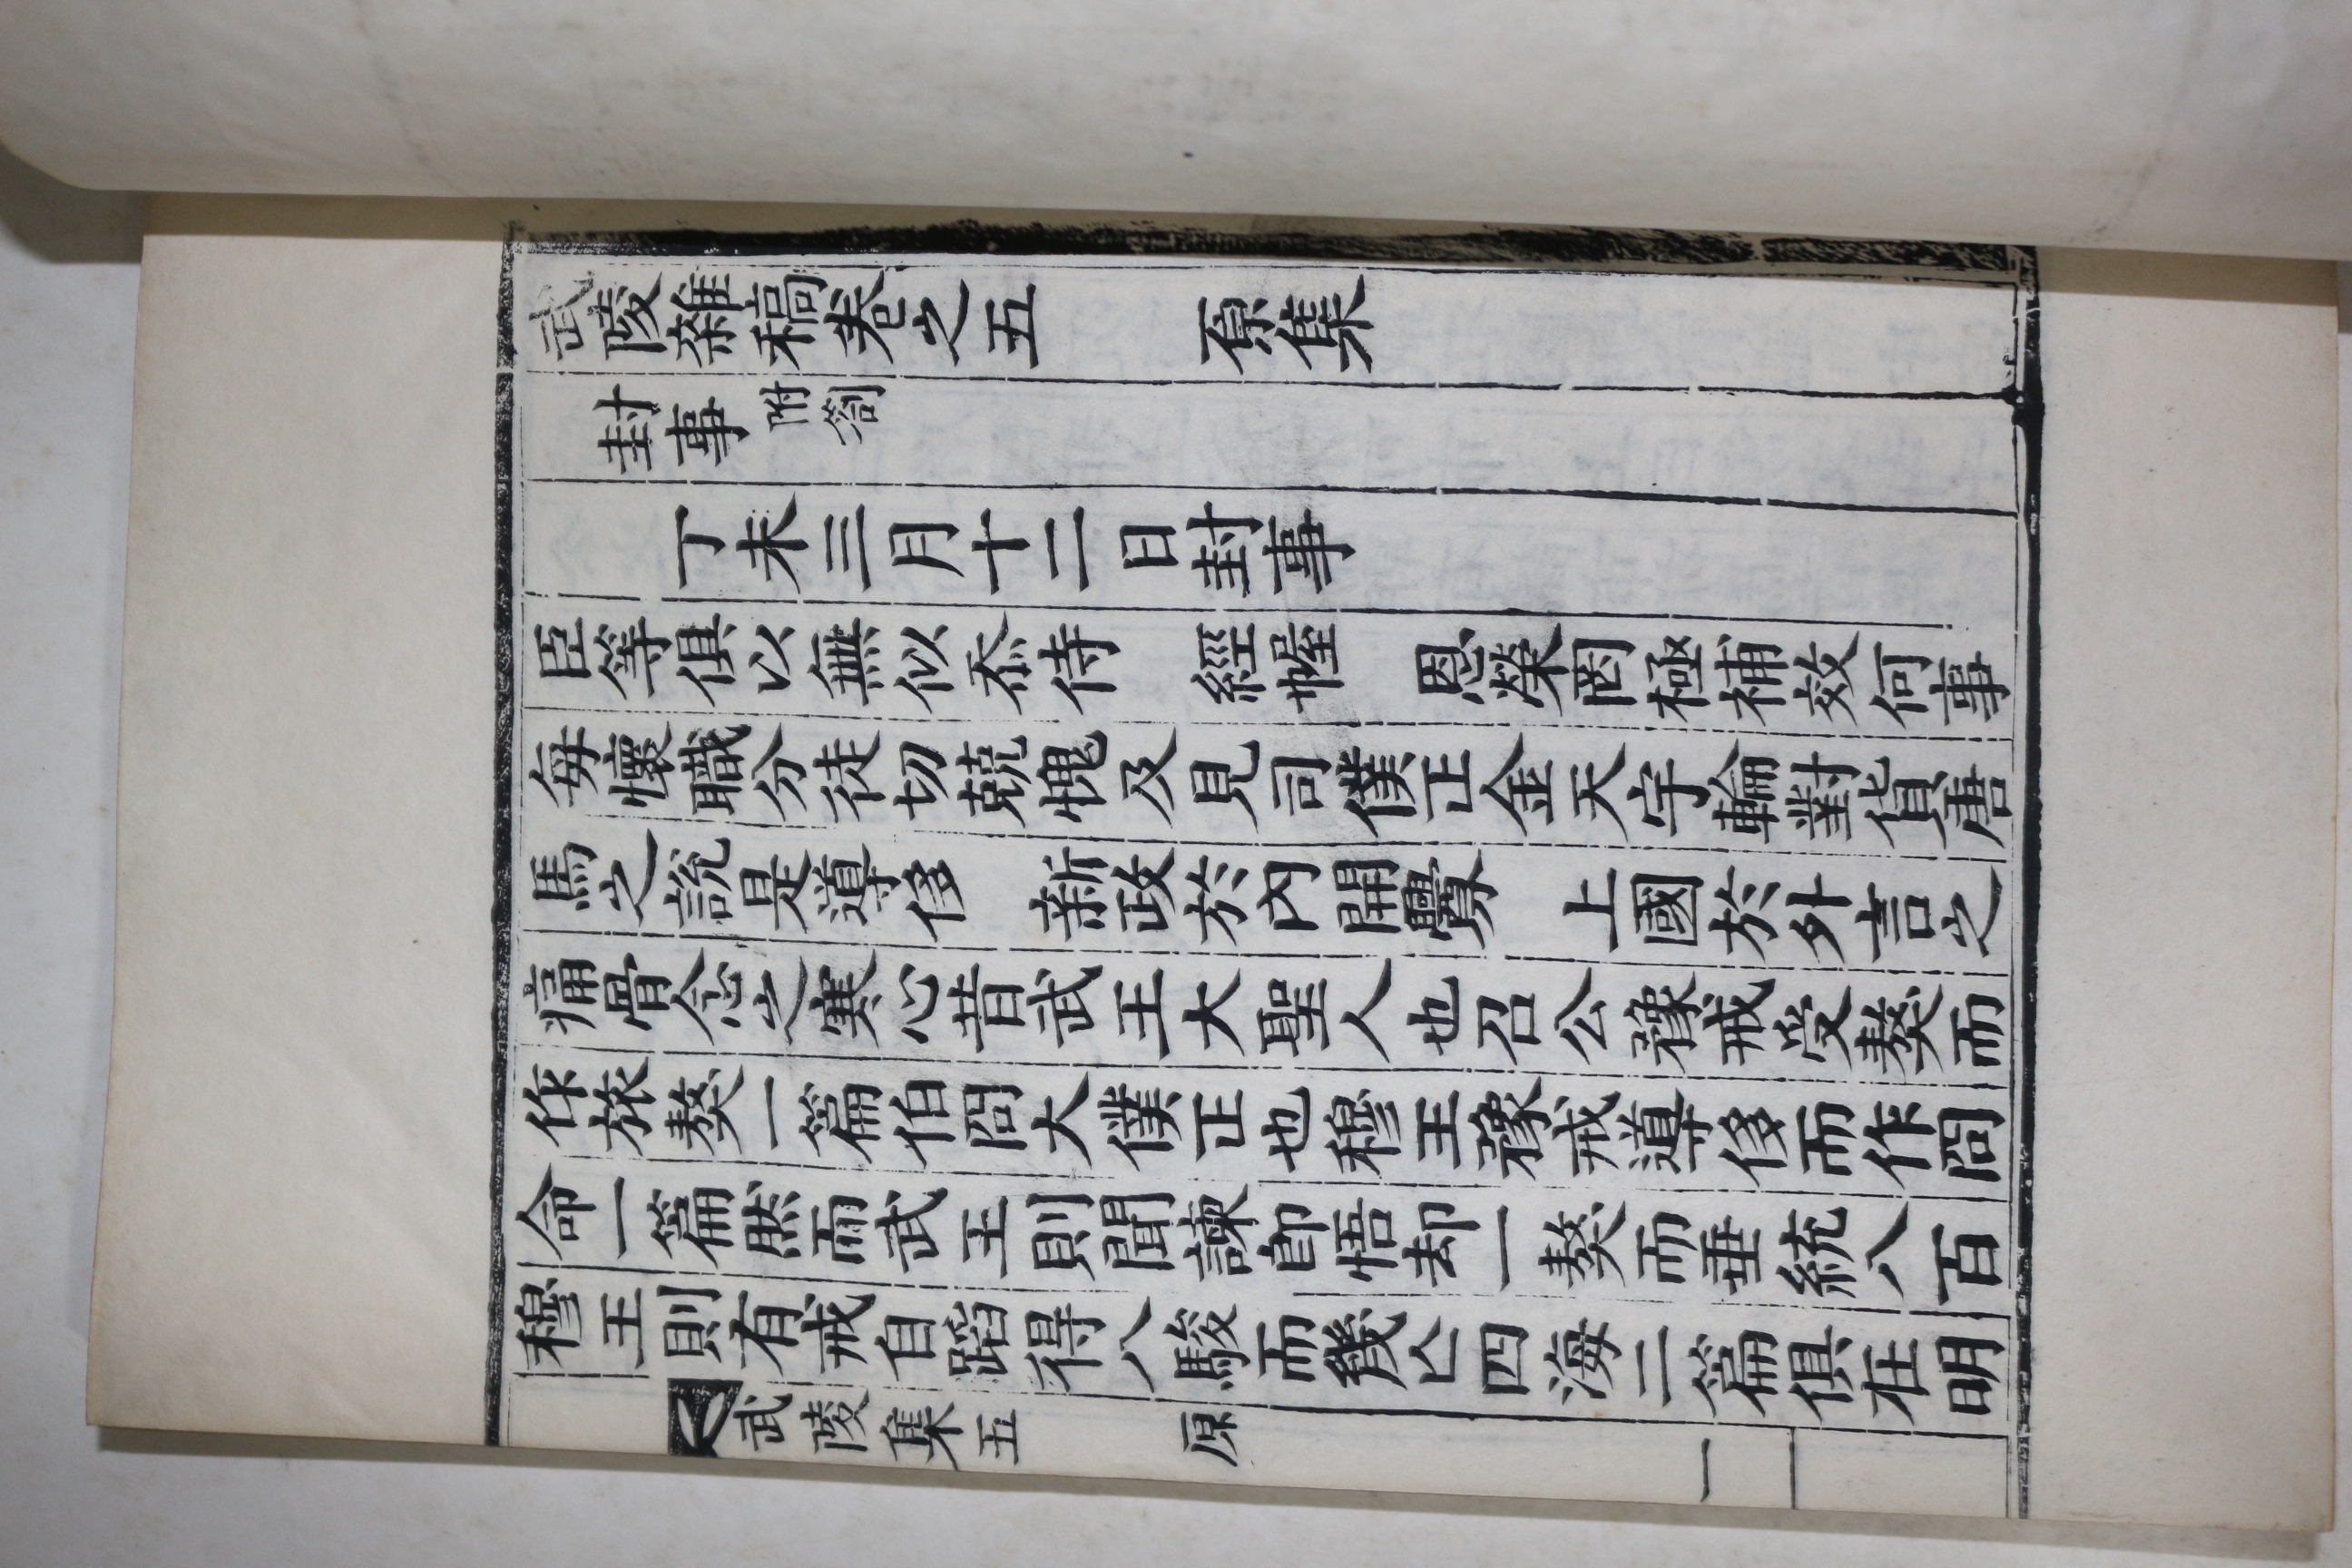 武陵雜稿卷之五　原集
封事附劄
丁未三月十二日封事
臣等俱以無似忝侍　經幄　恩榮罔極補效何事
每懷職分徒切兢愧及見司僕正金天宇輪對貨唐
馬之說是導侈　新政於內開釁　上國於外言之
痛骨念之寒心昔武王大聖人也召公豫戒受獒而
作旅獒一篇伯冏大僕正也穆王豫戒導侈而作冏
命一篇然而武王則聞諫卽悟却一獒而垂統八百
穆王則有戒自蹈得八駿而幾亾四海二篇俱在明
武陵集五　原　一